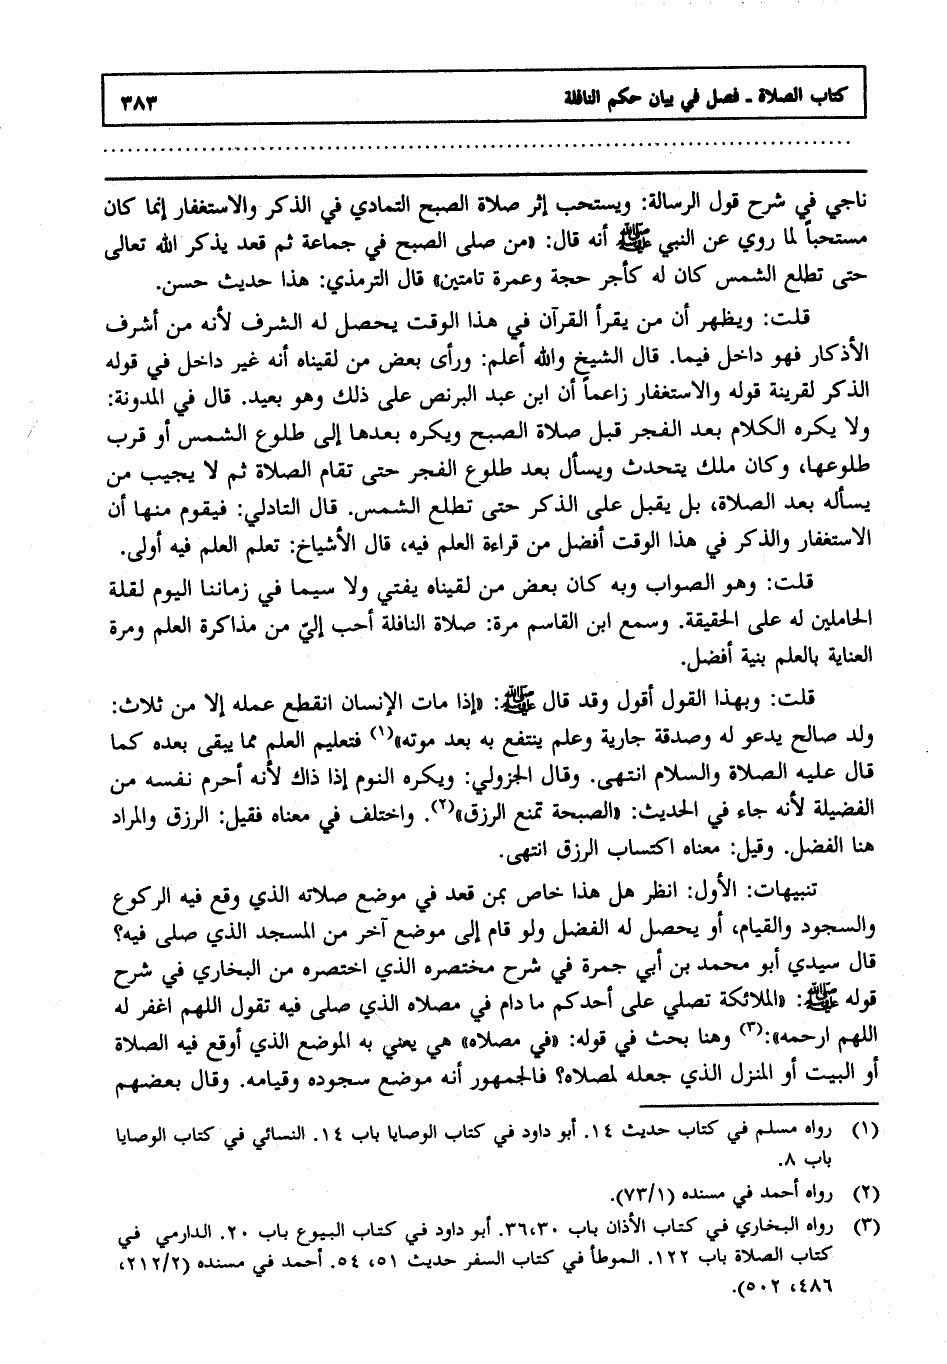 كتاب الصلاة ـ فصل في بيان حكم النافلة ٣٨٣
ناجي في شرح قول الرسالة: ويستحب إثر صلاة الصبح التمادي في الذكر والاستغفار إنما كان
مستحباً لما روي عن النبي ﷺ أنه قال: «من صلى الصبح في جماعة ثم قعد يذكر الله تعالى
حتى تطلع الشمس كان له كأجر حجة وعمرة تامتين» قال الترمذي: هذا حديث حسن.
قلت: ويظهر أن من يقرأ القرآن في هذا الوقت يحصل له الشرف لأنه من أشرف
الأذكار فهو داخل فيما. قال الشيخ والله أعلم: ورأى بعض من لقيناه أنه غير داخل في قوله
الذكر لقرينة قوله والاستغفار زاعماً أن ابن عبد البرنص على ذلك وهو بعيد. قال في المدونة:
ولا يكره الكلام بعد الفجر قبل صلاة الصبح ويكره بعدها إلى طلوع الشمس أو قرب
طلوعها، وكان ملك يتحدث ويسأل بعد طلوع الفجر حتى تقام الصلاة ثم لا يجيب من
يسأله بعد الصلاة، بل يقبل على الذكر حتى تطلع الشمس. قال التادلي: فيقوم منها أن
الاستغفار والذكر في هذا الوقت أفضل من قراءة العلم فيه، قال الأشياخ: تعلم العلم فيه أولى.
قلت: وهو الصواب وبه كان بعض من لقيناه يفتي ولا سيما في زماننا اليوم لقلة
الحاملين له على الحقيقة. وسمع ابن القاسم مرة: صلاة النافلة أحب إليّ من مذاكرة العلم ومرة
العناية بالعلم بنية أفضل.
قلت: وبهذا القول أقول وقد قال ﷺ: «إذا مات الإنسان انقطع عمله إلا من ثلاث:
ولد صالح يدعو له وصدقة جارية وعلم ينتفع به بعد موته»(١) فتعليم العلم مما يبقى بعده كما
قال عليه الصلاة والسلام انتهى. وقال الجزولي: ويكره النوم إذا ذاك لأنه أحرم نفسه من
الفضيلة لأنه جاء في الحديث: «الصبحة تمنع الرزق»(٢). واختلف في معناه فقيل: الرزق والمراد
هنا الفضل. وقيل: معناه اكتساب الرزق انتهى.
تنبيهات: الأول: انظر هل هذا خاص بمن قعد في موضع صلاته الذي وقع فيه الركوع
والسجود والقيام، أو يحصل له الفضل ولو قام إلى موضع آخر من المسجد الذي صلى فيه؟
قال سيدي أبو محمد بن أبي جمرة في شرح مختصره الذي اختصره من البخاري في شرح
قوله ﷺ: «الملائكة تصلي على أحدكم ما دام في مصلاه الذي صلى فيه تقول اللهم اغفر له
اللهم ارحمه»:(٣) وهنا بحث في قوله: «في مصلاه» هي يعني به الموضع الذي أوقع فيه الصلاة
أو البيت أو المنزل الذي جعله لمصلاه؟ فالجمهور أنه موضع سجوده وقيامه. وقال بعضهم
(١) رواه مسلم في كتاب حديث ١٤. أبو داود في كتاب الوصايا باب ١٤. النسائي في كتاب الوصايا
باب ٨.
(٢) رواه أحمد في مسنده (٧٣/١).
(٣) رواه البخاري في كتاب الأذان باب ٣٦،٣٠. أبو داود في كتاب البيوع باب ٢٠. الدارمي في
كتاب الصلاة باب ١٢٢. الموطأ في كتاب السفر حديث ٥١، ٥٤. أحمد في مسنده (٢١٢/٢،
٤٨٦، ٥٠٢).